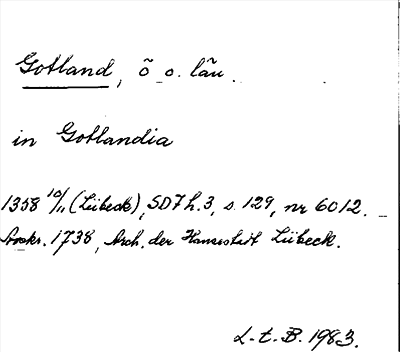 Gotland, õ o. lãn.
in Gotlandia
1358 10/11 (Lübeck), SD7 h.3, s. 129, nr 6012.
Avskr. 1738, Arch. der Hansestadt Lübeck.
L.t.B. 1983.